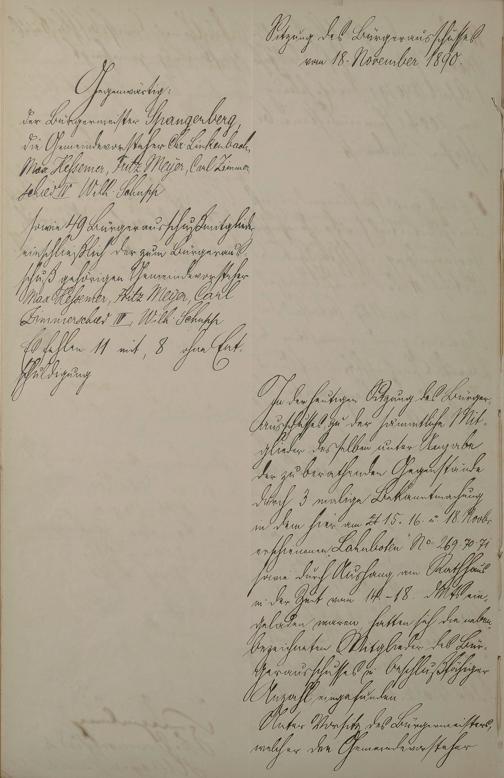 Sitzung des Bürgerausschußes
vom 18. November 1890.
Gegenwärtig:
der Bürgermeister Spangenberg,
die Gemeindevorsteher Chr. Linkenbach,
Max Hessemer, Fritz Meyer, Carl Zimmer-
schied IV Wilh. Schupp
sowie 49 Bürgerausschußmitglieder
einschließlich der zum Bürgeraus-
schuß gehörigen Gemeindevorsteher
Max Hessemer, Fritz Meyer, Carl
Zimmerschied IV, Wilh. Schupp
Es fehlen 11 mit, 8 ohne Ent-
schuldigung
In der heutigen Sitzung des Bürger-
ausschußes zu der sämmtliche Mit-
glieder desselben unter Angabe
der zu berathenden Gegenstände
durch 3 malige Bekanntmachung
in dem hier am 15. 16. u 18. Novbr.
erschienenen Lahnboten No 269. 70. 71
sowie durch Aushang am Rathhaus
in der Zeit vom 14.-18. d Mts ein-
geladen waren, hatten sich die neben
bezeichneten Mitglieder des Bür-
gerausschusses in beschlußfähiger
Anzahl eingefunden
Unter Vorsitz des Bürgermeisters,
welcher den Gemeindevorsteher